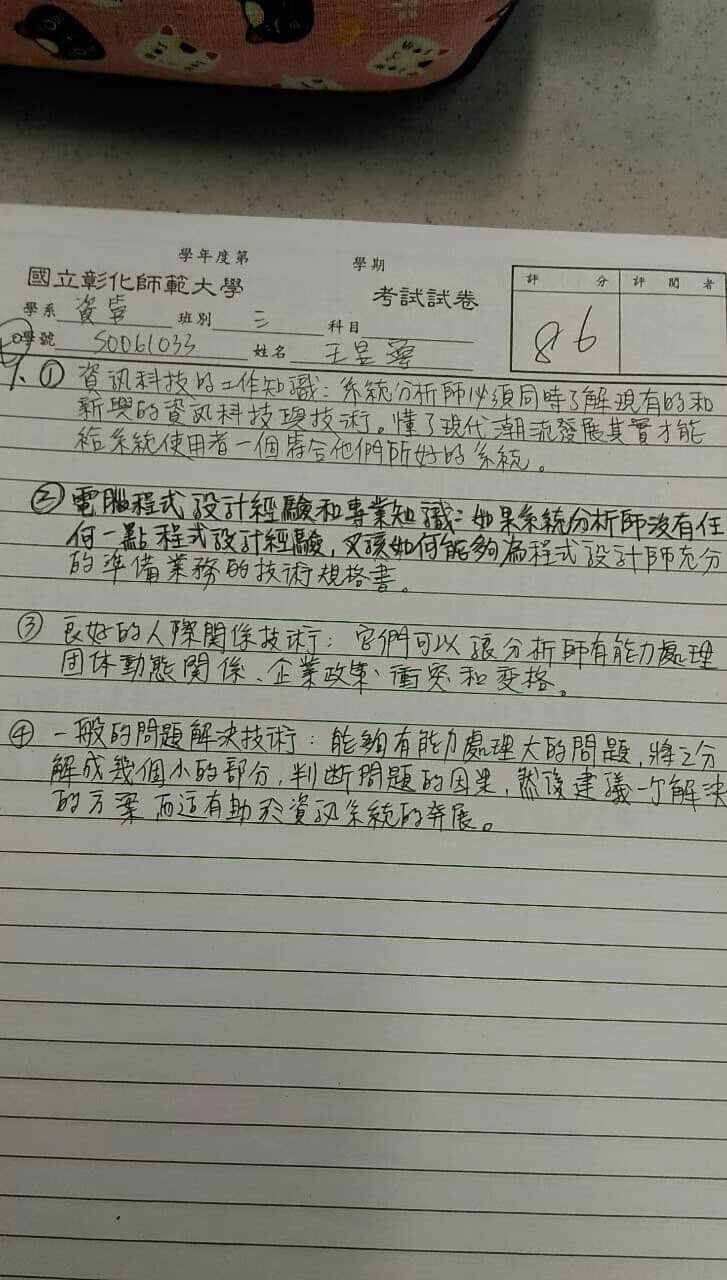 學年度第 學期
國立彰化師範大學 考試試卷
評分 評閱者
學系 資管 班別 三 科目
86
學號 S0061033 姓名 王昱
1. ① 資訊科技的工作知識：系統分析師必須同時了解現有的和
新興的資訊科技與技術。懂了現代潮流發展其實才能
給系統使用者一個符合他們所好的系統。
② 電腦程式設計經驗和專業知識：如果系統分析師沒有任
何一點程式設計經驗，又該如何能夠為程式設計師充分
的準備業務的技術規格書。
③ 良好的人際關係技術：它們可以讓分析師有能力處理
団体動態關係、企業政策、衝突和变格。
④ 一般的問題解決技術：能夠有能力處理大的問題，將之分
解成幾個小的部分，判断問題的因果，然後建議一个解決
的方案而這有助於資訊系統的発展。